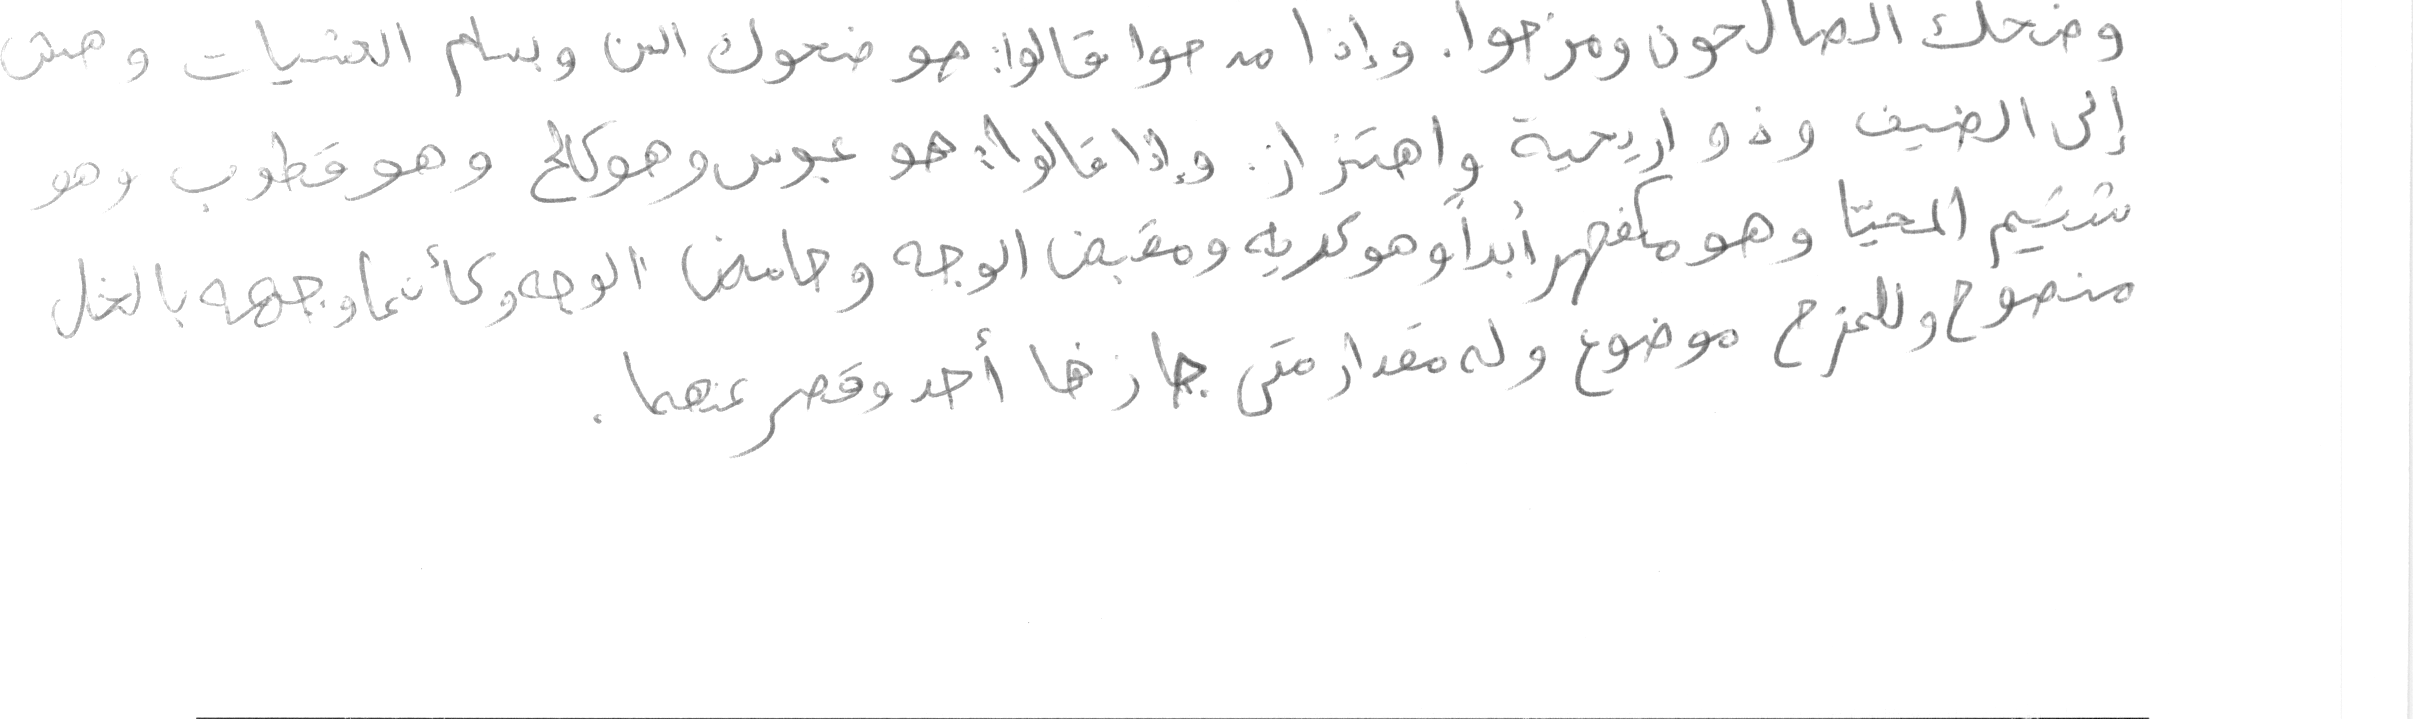 وضحك الصالحون ومزحوا. وإذا مدحوا قالوا: هو ضحوك السن وبسام العشيات وهش
إلى الضيف وذو اريحية واهتزاز. وإذا قالوا: هو عبوس وهو كالح وهو قطوب وهو
شتيم المحيّا وهو مكفهر أبداً وهو كريه ومقبض الوجه وحامض الوجه وكأنما وجهه بالخل
منضوح وللمزح موضوع وله مقدار متى جازها أحد وقصر عنهما.